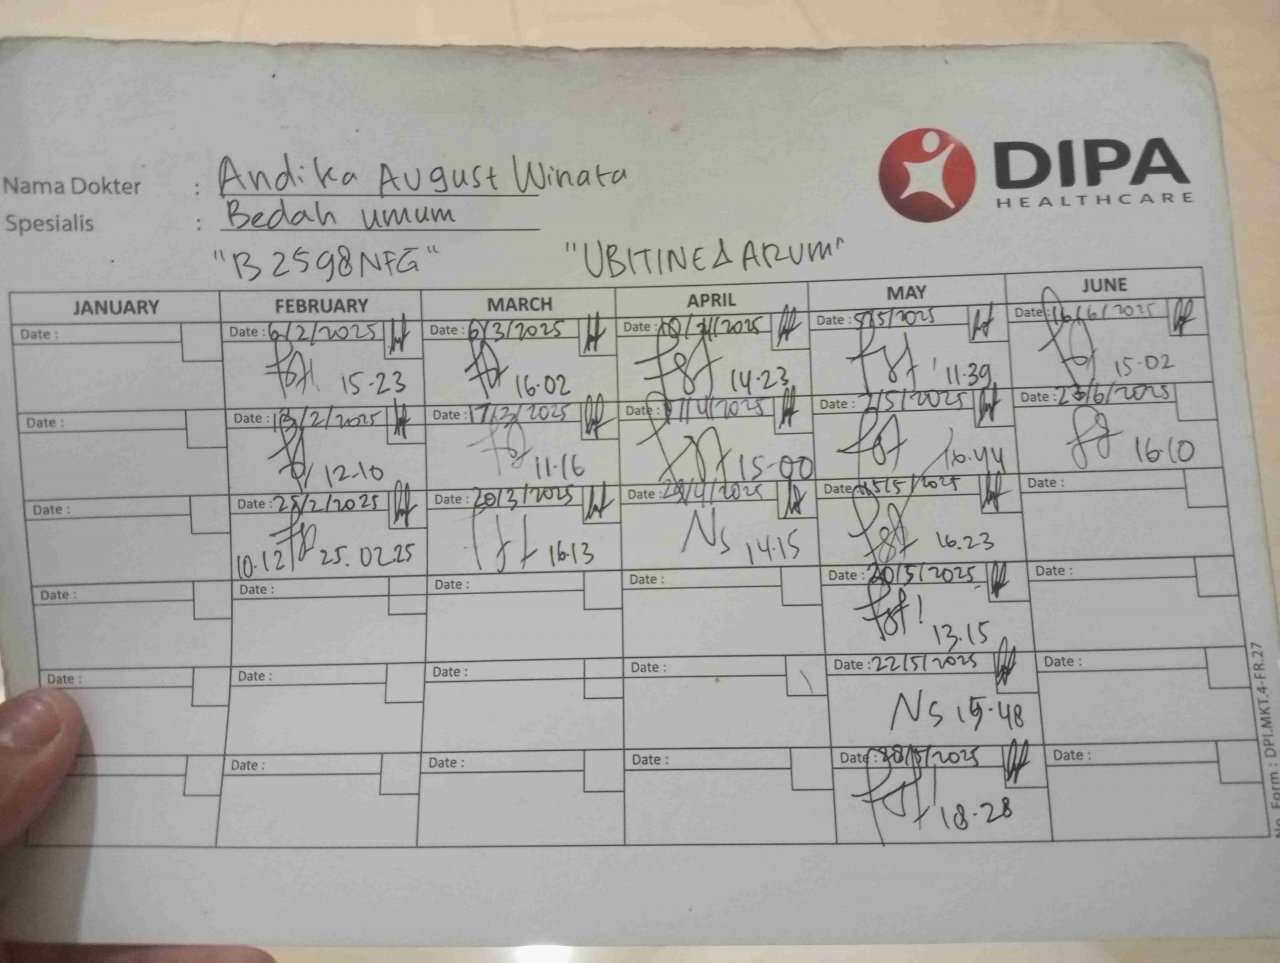 DIPA
HEALTHCARE
Nama Dokter : Andika August Winata
Spesialis : Bedah umum
"B 2598 NFG" "UBITINE & ARUM"
JANUARY FEBRUARY MARCH APRIL MAY JUNE
Date : Date : 6/2/2025 Date : 6/3/2025 Date : /2025 Date : 5/5/2025 Date : 16/6/2025
15.23 16.02 14.23 11.39 15.02
Date : Date : 13/2/2025 Date : 17/3/2025 Date : 17/4/2025 Date : /5/2025 Date : 23/6/2025
12.10 11.16 15.00 16.44 16.10
Date : Date : 25/2/2025 Date : 20/3/2025 Date : /4/2025 Date : 15/5/2025 Date :
10.12 25.02.25 16.13 Ns 14.15 16.23
Date : Date : Date : Date : Date : 20/5/2025 Date :
13.15
Date : Date : Date : Date : Date : 22/5/2025 Date :
Ns 15.48
Date : Date : Date : Date : Date : 28/5/2025 Date :
18.28
No. Form : DPI.MKT.4-FR.27